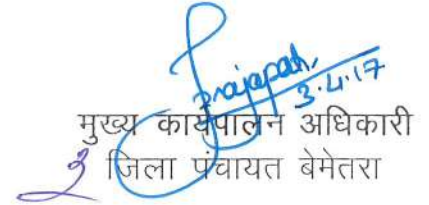 prajapati
3.4.17
मुख्य कार्यपालन अधिकारी
जिला पंचायत बेमेतरा